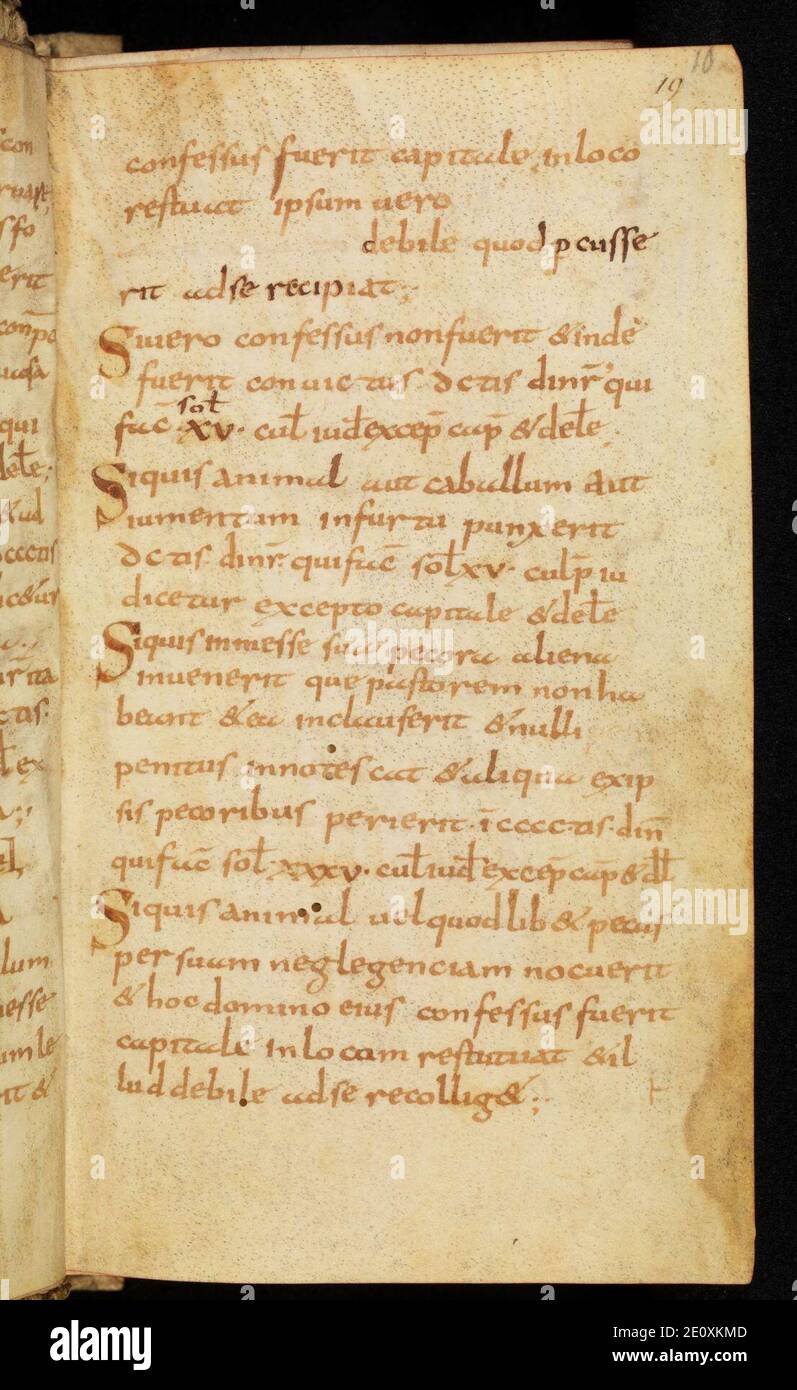 19 10
confessus fuerit capitale inloco
restituat ipsum uero
debile quod ꝑcusse
rit adse recipiat;
Siuero confessus nonfuerit &indē
fuerit conuictus dctis dinr̄ qui
fac̄ sol̄ xv· cul̄ iud̄ excep̄ cap̄ & del̄e
Siquis animal aut caballum aut
iumentum infurtu punxerit
dctis· dinr̄ quifac̄ sol̄ xv· culp̄ iu
dicetur excepto capitale & del̄e
Siquis inmesse sua pecora aliena
inuenerit que pastorem nonha
beant &ea inclauserit & nulli
penitus innotescat & aliqua exip
sis pecoribus perierit· ī cccc tis· din̄
quifac̄ sol̄ xxxv· cul̄ iud̄ excep̄ cap̄ & dl̄
Siquis animal uel quodlib& pecus
per suam neglegenciam nocuerit
& hoc domino eius confessus fuerit
capitale inlocum restituat & il
lud debile adse recollig&;
alamy
Image ID: 2E0XKMD
www.alamy.com